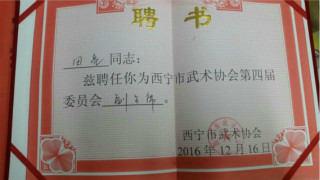 聘书
田亮同志:
兹聘任你为西宁市武术协会第四届
委员会 副主席。
西宁市武术协会
2016年12月16日